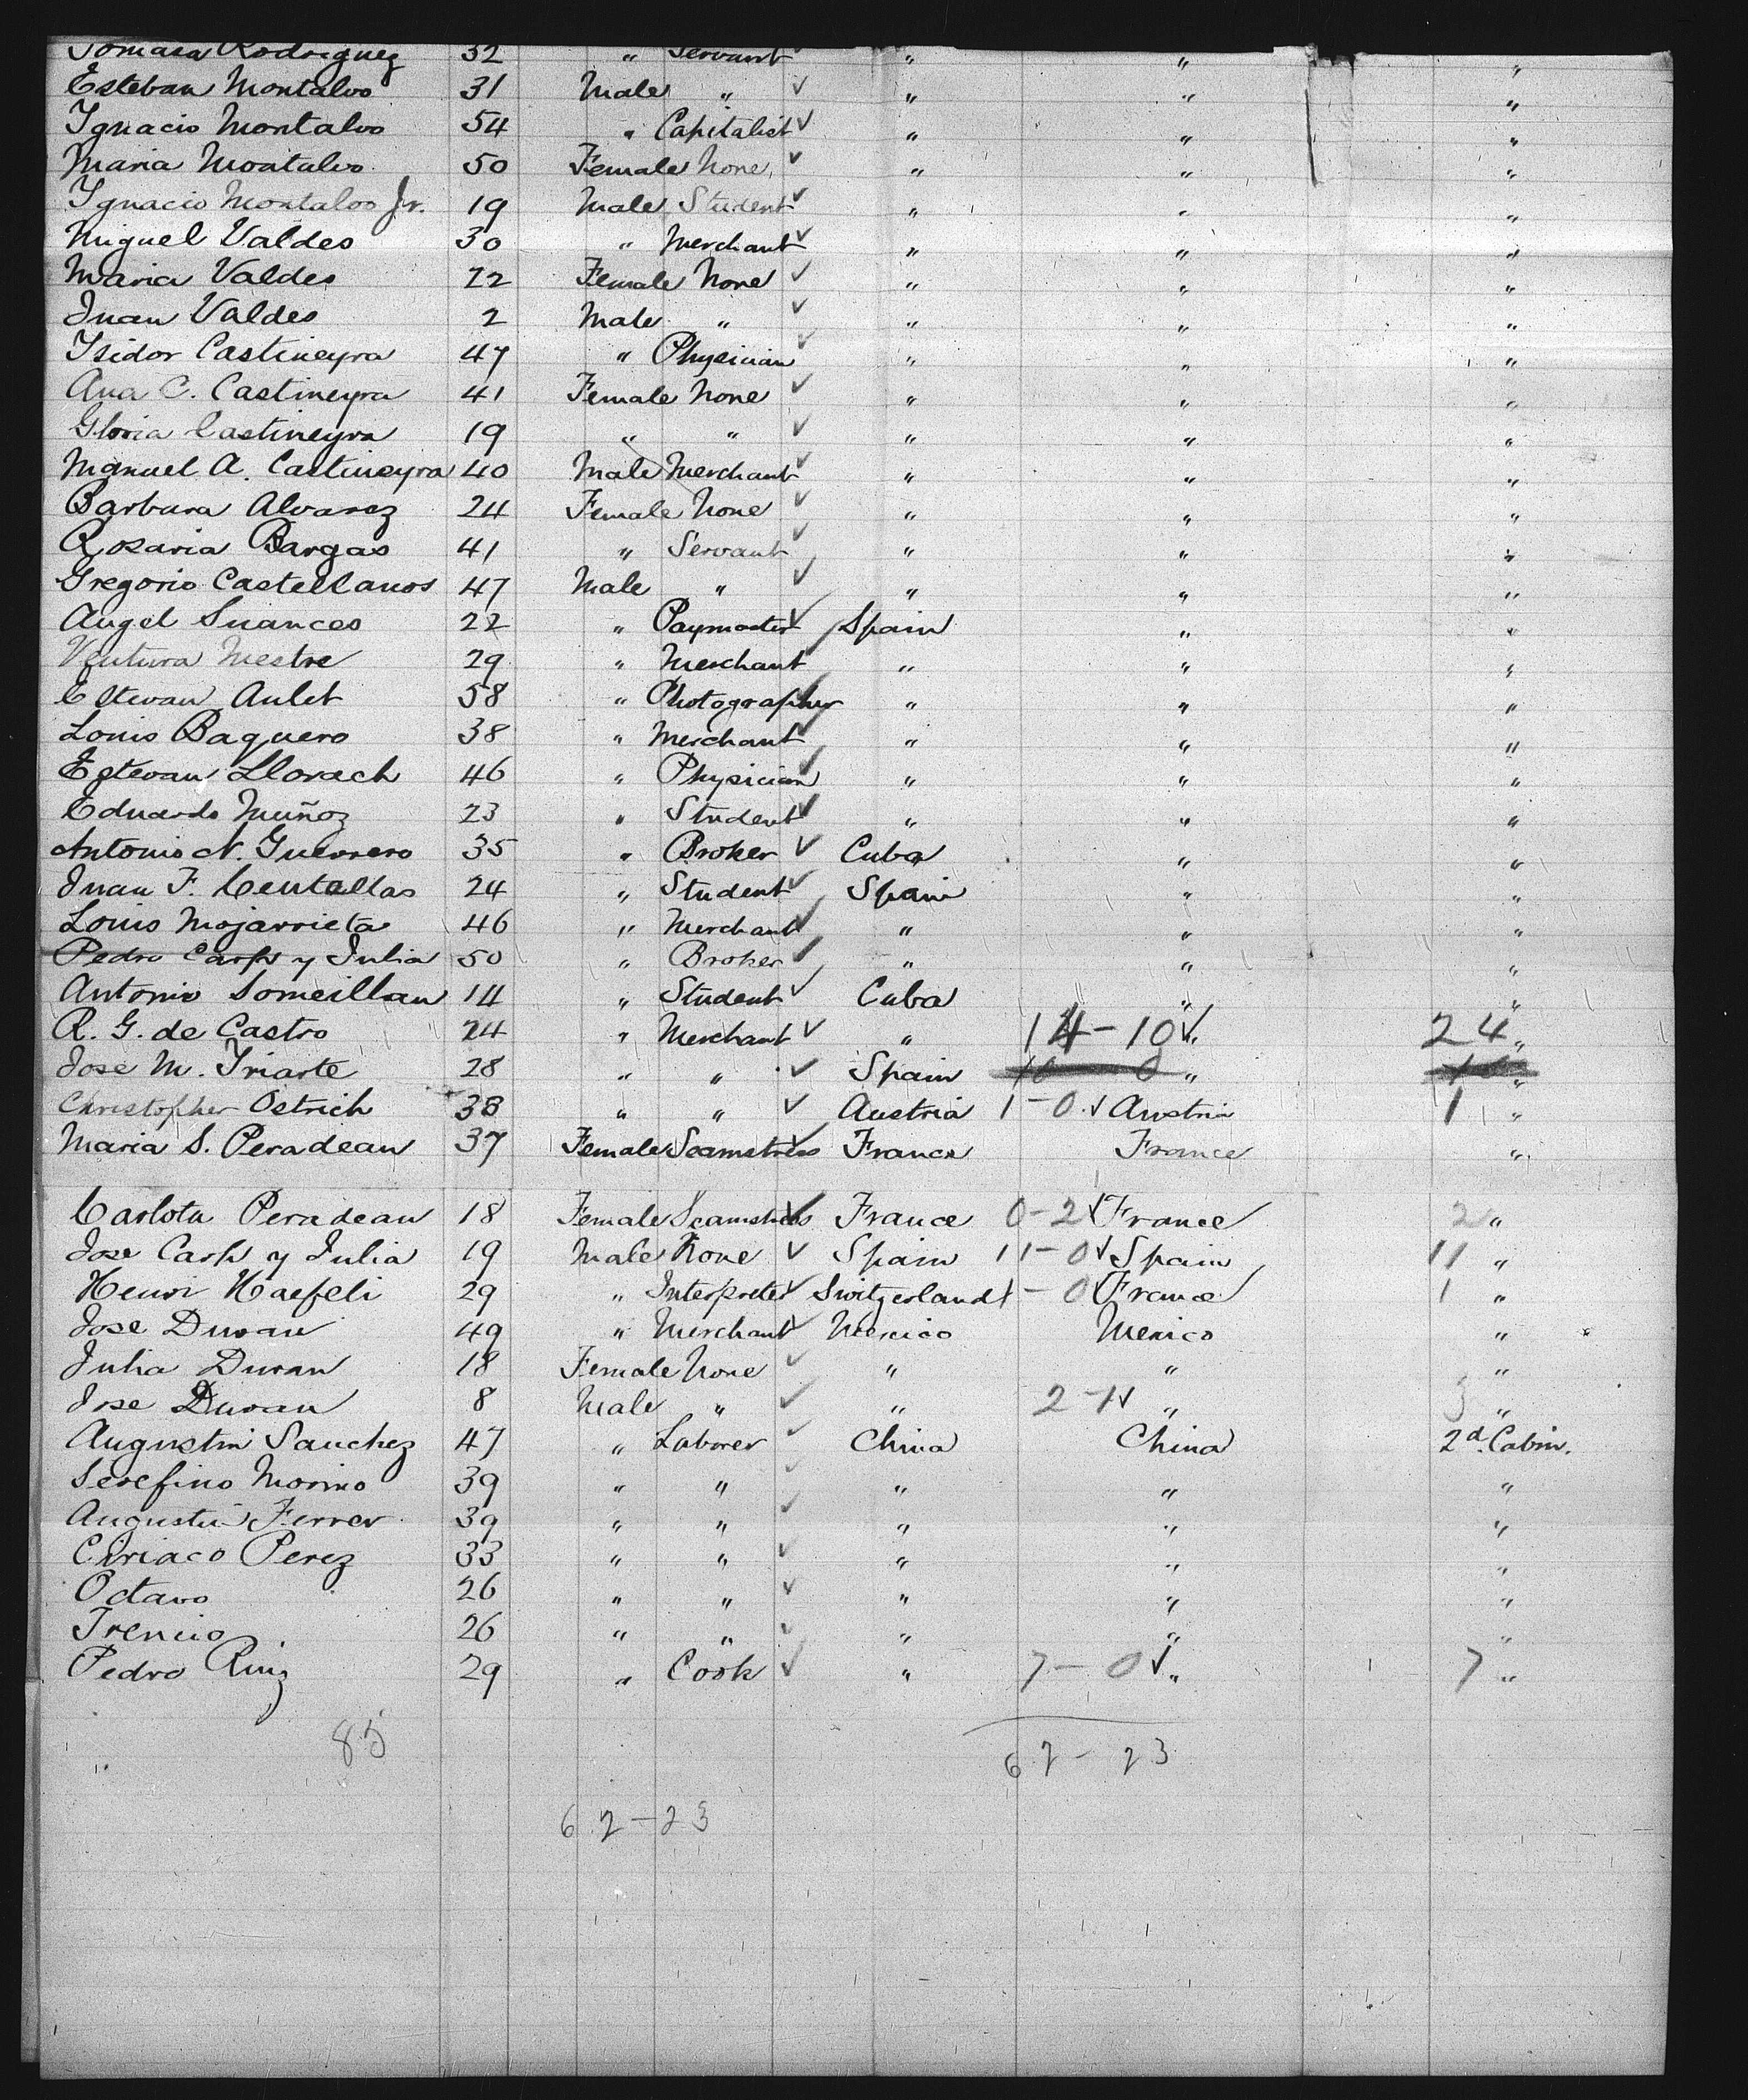 Tomasa Rodriguez 32 " Servant " " "
Esteban Montalvo 31 Male " ✓ " " "
Ygnacio Montalvo 54 " Capitalist ✓ " " "
Maria Montalvo 50 Female None ✓ " " "
Ygnacio Montalvo Jr. 19 Male Student ✓ " " "
Miguel Valdes 30 " Merchant ✓ " " "
Maria Valdes 22 Female None ✓ " " "
Juan Valdes 2 Male " ✓ " " "
Isidor Castineyra 47 " Physician ✓ " " "
Ana C. Castineyra 41 Female None ✓ " " "
Gloria Castineyra 19 " " ✓ " " "
Manuel A. Castineyra 40 Male Merchant ✓ " " "
Barbara Alvarez 24 Female None ✓ " " "
Rosaria Bargas 41 " Servant ✓ " " "
Gregorio Castellanos 47 Male " ✓ " " "
Angel Suances 22 " Paymaster ✓ Spain " "
Ventura Mestre 29 " Merchant ✓ " " "
Estevan Aulet 58 " Photographer ✓ " " "
Louis Baquero 38 " Merchant ✓ " " "
Estevan Llorach 46 " Physician ✓ " " "
Eduardo Muñoz 23 " Student ✓ " " "
Antonio N. Guerrero 35 " Broker ✓ Cuba " "
Juan F. Centellas 24 " Student ✓ Spain " "
Louis Mojarrieta 46 " Merchant ✓ " " "
Pedro Carp y Julia 50 " Broker ✓ " " "
Antonio Someillan 14 " Student ✓ Cuba " "
R. G. de Castro 24 " Merchant ✓ " 14-10 ✓ " 24 "
Jose M. Iriarte 28 " " ✓ Spain " "
Christopher Ostrich 38 " " ✓ Austria 1-0 ✓ Austria 1 "
Maria S. Peradeau 37 Female Seamstress ✓ France France "
Carlota Peradeau 18 Female Seamstress ✓ France 0-2 ✓ France 2 "
Jose Carp y Julia 19 Male None ✓ Spain 11-0 ✓ Spain 11 "
Henri Haefeli 29 " Interpreter ✓ Switzerland 1-0 ✓ France 1 "
Jose Duran 49 " Merchant ✓ Mexico Mexico "
Julia Duran 18 Female None ✓ " " "
Jose Duran 8 Male " ✓ " 2-1 ✓ " 3 "
Augustin Sanchez 47 " Laborer ✓ China China 2d Cabin.
Serefino Morino 39 " " ✓ " " "
Augustin Ferrer 39 " " ✓ " " "
Ciriaco Perez 33 " " ✓ " " "
Octavo 26 " " ✓ " " "
Irenio 26 " " ✓ " " "
Pedro Ruiz 29 " Cook ✓ " 7-0 ✓ " 7 "
85
62-23
62-23